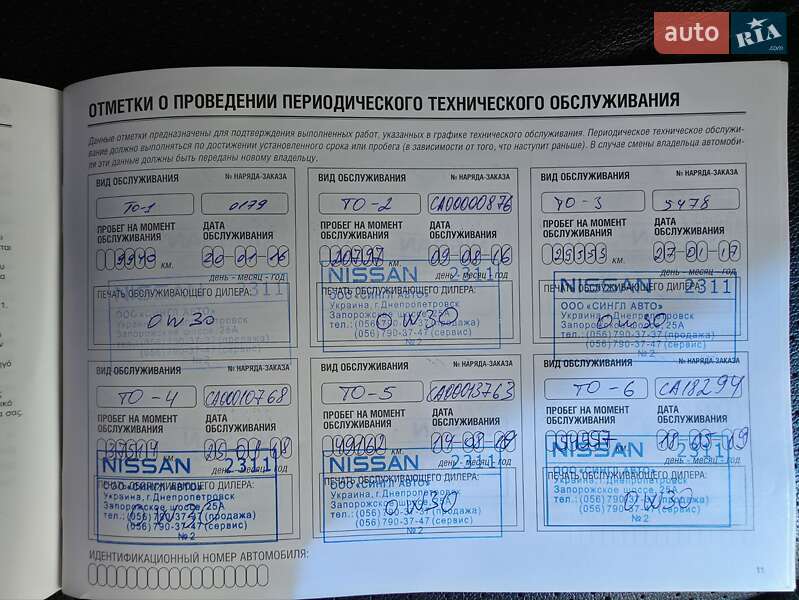 auto RIA.com
ОТМЕТКИ О ПРОВЕДЕНИИ ПЕРИОДИЧЕСКОГО ТЕХНИЧЕСКОГО ОБСЛУЖИВАНИЯ
Данные отметки предназначены для подтверждения выполненных работ, указанных в графике технического обслуживания. Периодическое техническое обслужи-
вание должно выполняться по достижении установленного срока или пробега (в зависимости от того, что наступит раньше). В случае смены владельца автомоби-
ля эти данные должны быть переданы новому владельцу.
ВИД ОБСЛУЖИВАНИЯ № НАРЯДА-ЗАКАЗА
ТО-1 0179
ПРОБЕГ НА МОМЕНТ ОБСЛУЖИВАНИЯ ДАТА ОБСЛУЖИВАНИЯ
9940 км. 20-01-16
день - месяц - год
ПЕЧАТЬ ОБСЛУЖИВАЮЩЕГО ДИЛЕРА:
0W30
ВИД ОБСЛУЖИВАНИЯ № НАРЯДА-ЗАКАЗА
ТО-2 СА00000876
ПРОБЕГ НА МОМЕНТ ОБСЛУЖИВАНИЯ ДАТА ОБСЛУЖИВАНИЯ
20797 км. 09-08-16
день - месяц - год
NISSAN 2311
ПЕЧАТЬ ОБСЛУЖИВАЮЩЕГО ДИЛЕРА:
ООО «СИНГЛ АВТО»
Украина, г.Днепропетровск
Запорожское шоссе, 25А
тел.: (056) 790-37-37 (продажа)
(056) 790-37-47 (сервис)
№2
0W30
ВИД ОБСЛУЖИВАНИЯ № НАРЯДА-ЗАКАЗА
ТО-3 3478
ПРОБЕГ НА МОМЕНТ ОБСЛУЖИВАНИЯ ДАТА ОБСЛУЖИВАНИЯ
29333 км. 27-01-17
день - месяц - год
NISSAN 2311
ПЕЧАТЬ ОБСЛУЖИВАЮЩЕГО ДИЛЕРА:
ООО «СИНГЛ АВТО»
Украина, г.Днепропетровск
Запорожское шоссе, 25А
тел.: (056) 790-37-37 (продажа)
(056) 790-37-47 (сервис)
№2
0W30
ВИД ОБСЛУЖИВАНИЯ № НАРЯДА-ЗАКАЗА
ТО-4 СА00010768
ПРОБЕГ НА МОМЕНТ ОБСЛУЖИВАНИЯ ДАТА ОБСЛУЖИВАНИЯ
км.
день - месяц - год
NISSAN 2311
ПЕЧАТЬ ОБСЛУЖИВАЮЩЕГО ДИЛЕРА:
ООО «СИНГЛ АВТО»
Украина, г.Днепропетровск
Запорожское шоссе, 25А
тел.: (056) 790-37-37 (продажа)
(056) 790-37-47 (сервис)
№2
ВИД ОБСЛУЖИВАНИЯ № НАРЯДА-ЗАКАЗА
ТО-5 СА00013763
ПРОБЕГ НА МОМЕНТ ОБСЛУЖИВАНИЯ ДАТА ОБСЛУЖИВАНИЯ
49162 км.
день - месяц - год
NISSAN 2311
ПЕЧАТЬ ОБСЛУЖИВАЮЩЕГО ДИЛЕРА:
ООО «СИНГЛ АВТО»
Украина, г.Днепропетровск
Запорожское шоссе, 25А
тел.: (056) 790-37-37 (продажа)
(056) 790-37-47 (сервис)
№2
0W30
ВИД ОБСЛУЖИВАНИЯ № НАРЯДА-ЗАКАЗА
ТО-6 СА18294
ПРОБЕГ НА МОМЕНТ ОБСЛУЖИВАНИЯ ДАТА ОБСЛУЖИВАНИЯ
18-05-19
день - месяц - год
NISSAN 2311
ПЕЧАТЬ ОБСЛУЖИВАЮЩЕГО ДИЛЕРА:
ООО «СИНГЛ АВТО»
Украина, г.Днепропетровск
Запорожское шоссе, 25А
тел.: (056) 790-37-37 (продажа)
(056) 790-37-47 (сервис)
№2
0W30
ИДЕНТИФИКАЦИОННЫЙ НОМЕР АВТОМОБИЛЯ:
11